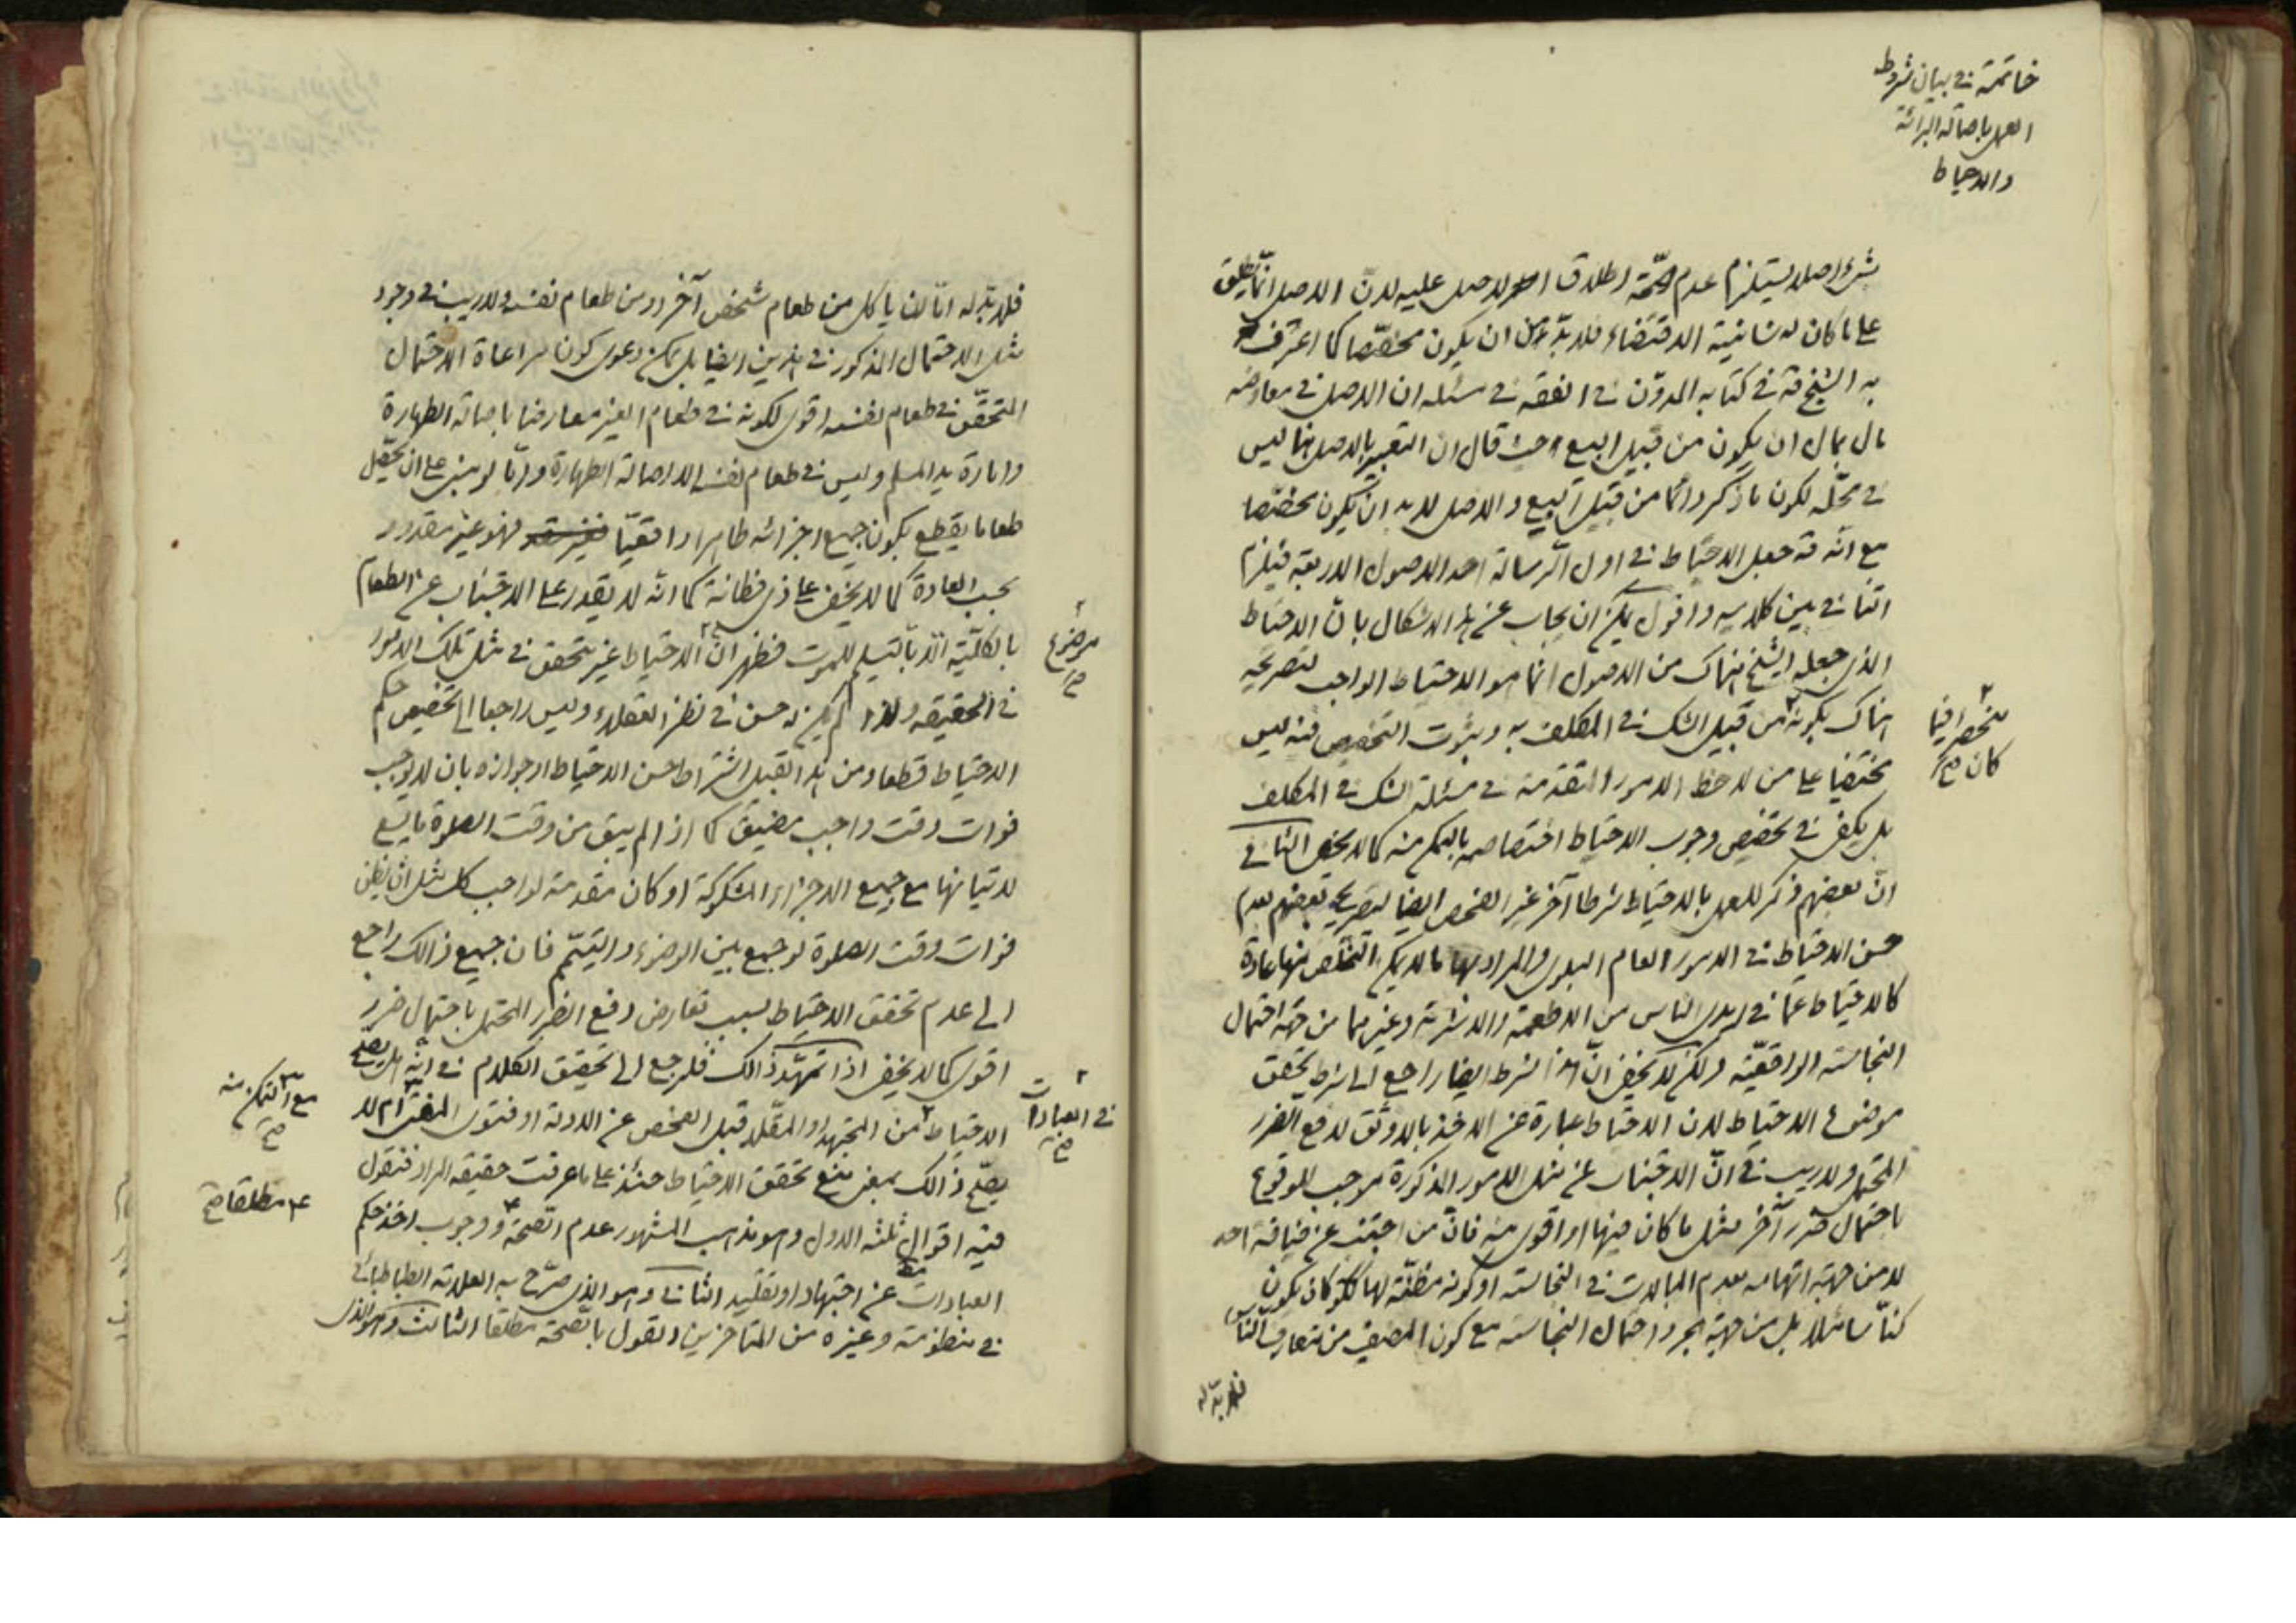 خاتمة في بيان شروط
العمل باصالة البرائة
والاحتياط
بشيء اصلا يستلزم عدم صحّة اطلاق الاصل عليه لانّ الاصل انّما يطلق
على ما كان له شانية الاقتضاء فلا بدّ من ان يكون مخصّصا كما اعترف
به الشيخ قه في كتابه المدوّن في الفقه في مسئلة ان الاصل في معاوضة
مال بمال ان يكون من قبيل البيع حيث قال ان التعبير بالاصل هنا ليس
في محلّه لكون ما ذكر دائما من قبيل البيع والاصل لا بد ان يكون مخصّصا
مع انّه قه جعل الاحتياط في اول الرسالة احد الاصول الاربعة فيلزم
التنافي بين كلاميه واقول يمكن ان يجاب عن هذا الاشكال بانّ الاحتياط
الذي جعله الشيخ هناك من الاصول انما هو الاحتياط الواجب لتصريحه
هناك بكونه من قبيل الشك في المكلف به وثبوت التخصيص فيه ليس
منحصرا فيما
كان صح
مختفيا على من لاحظ الامور المتقدمة في مسئلة الشك في المكلف
بل يكفي في تخصيص وجوب الاحتياط اختصاصه بالتمكن منه كما لا يخفى الثاني
انّ بعضهم ذكر للعمل بالاحتياط شرطا آخر غير الفحص ايضا لتصريح بعضهم بعدم
حسن الاحتياط في الامور العام البلوى والمراد بها ما لا يمكن التخلّص منها عادة
كالاحتياط عمّا في ايدي الناس من الاطعمة والاشربة وغيرهما من جهة احتمال
النجاسة الواقعيّة ولكن لا يخفى انّ هذا الشرط ايضا راجع الى شرط تحقق
موضوع الاحتياط لان الاحتياط عبارة عن الاخذ بالاوثق لدفع الضرر
المحتمل ولا ريب في انّ الاجتناب عن مثل الامور المذكورة موجب للوقوع
باحتمال ضرر آخر مثل ما كان فيها او اقوى منه فانّ من اجتنب عن ضيافة احد
لا من جهة اتهامه بعدم المبالات في النجاسة او كونه مظنّة لها ككو كان يكون
كنّاسا مثلا بل من جهة مجرد احتمال النجاسة مع كون المضيف من متعارف الناس
فلا بدّ له
فلا بدّ له امّا ان ياكل من طعام شخص آخر او من طعام نفسه ولا ريب في وجود
مثل الاحتمال المذكور في هذين ايضا بل يمكن دعوى كون مراعاة الاحتمال
المتحقّق في طعام نفسه اقوى لكونه في طعام الغير معارضا باصالة الطهارة
وامارة يد المسلم وليس في طعام نفسه الا اصالة الطهارة وامّا لو بنى على ان يحصّل
طعاما يقطع بكون جميع اجزائه طاهرا واقعيّا فهو غير مقدور
بحسب العادة كما لا يخفى على ذي فطانة كما انّه لا يقدر على الاجتناب عن الطعام
بالكلّيّة الّا بالتسليم للموت فظهر انّ الاحتياط غير متحقق في مثل تلك الامور
موضوع
صح
في الحقيقة ولذا لم يكن له حسن في نظر العقلاء وليس راجعا الى تخصيص حكم
الاحتياط قطعا ومن هذا القبيل اشتراط حسن الاحتياط او جوازه بان لا يوجب
فوات وقت واجب مضيق كما اذا لم يبق من وقت الصلوة ما يسع
لاتيانها مع جميع الاجزاء المشكوكة او كان مقدمة لواجب كل مثل ان يظن
فوات وقت الصلوة لو جمع بين الوضوء والتيمّم فان جميع ذالك راجع
الى عدم تحقق الاحتياط بسبب تعارض دفع الضرر المحتمل باحتمال ضرر
اقوى كما لا يخفى اذا تمهّد ذالك فلنرجع الى تحقيق الكلام في انّه هل يصح
الاحتياط من المجتهد او المقلّد قبل الفحص عن الادلة او فتوى المفتي ام لا
في العبادات
صح
مع التمكن منه
صح
يصحّ ذالك بمعنى منع تحقق الاحتياط حينئذ على ما عرفت حقيقة المراد فنقول
فيه اقوال ثلثه الاول وهو مذهب المشهور عدم الصّحة و وجوب اخذ حكم
مطلقا صح
العبادات عن اجتهاد او تقليد الثاني وهو الذي صرّح به العلامة الطباطبائي
في منظومته وغيره من المتاخرين القول بالصّحة مطلقا الثالث وهو الذي